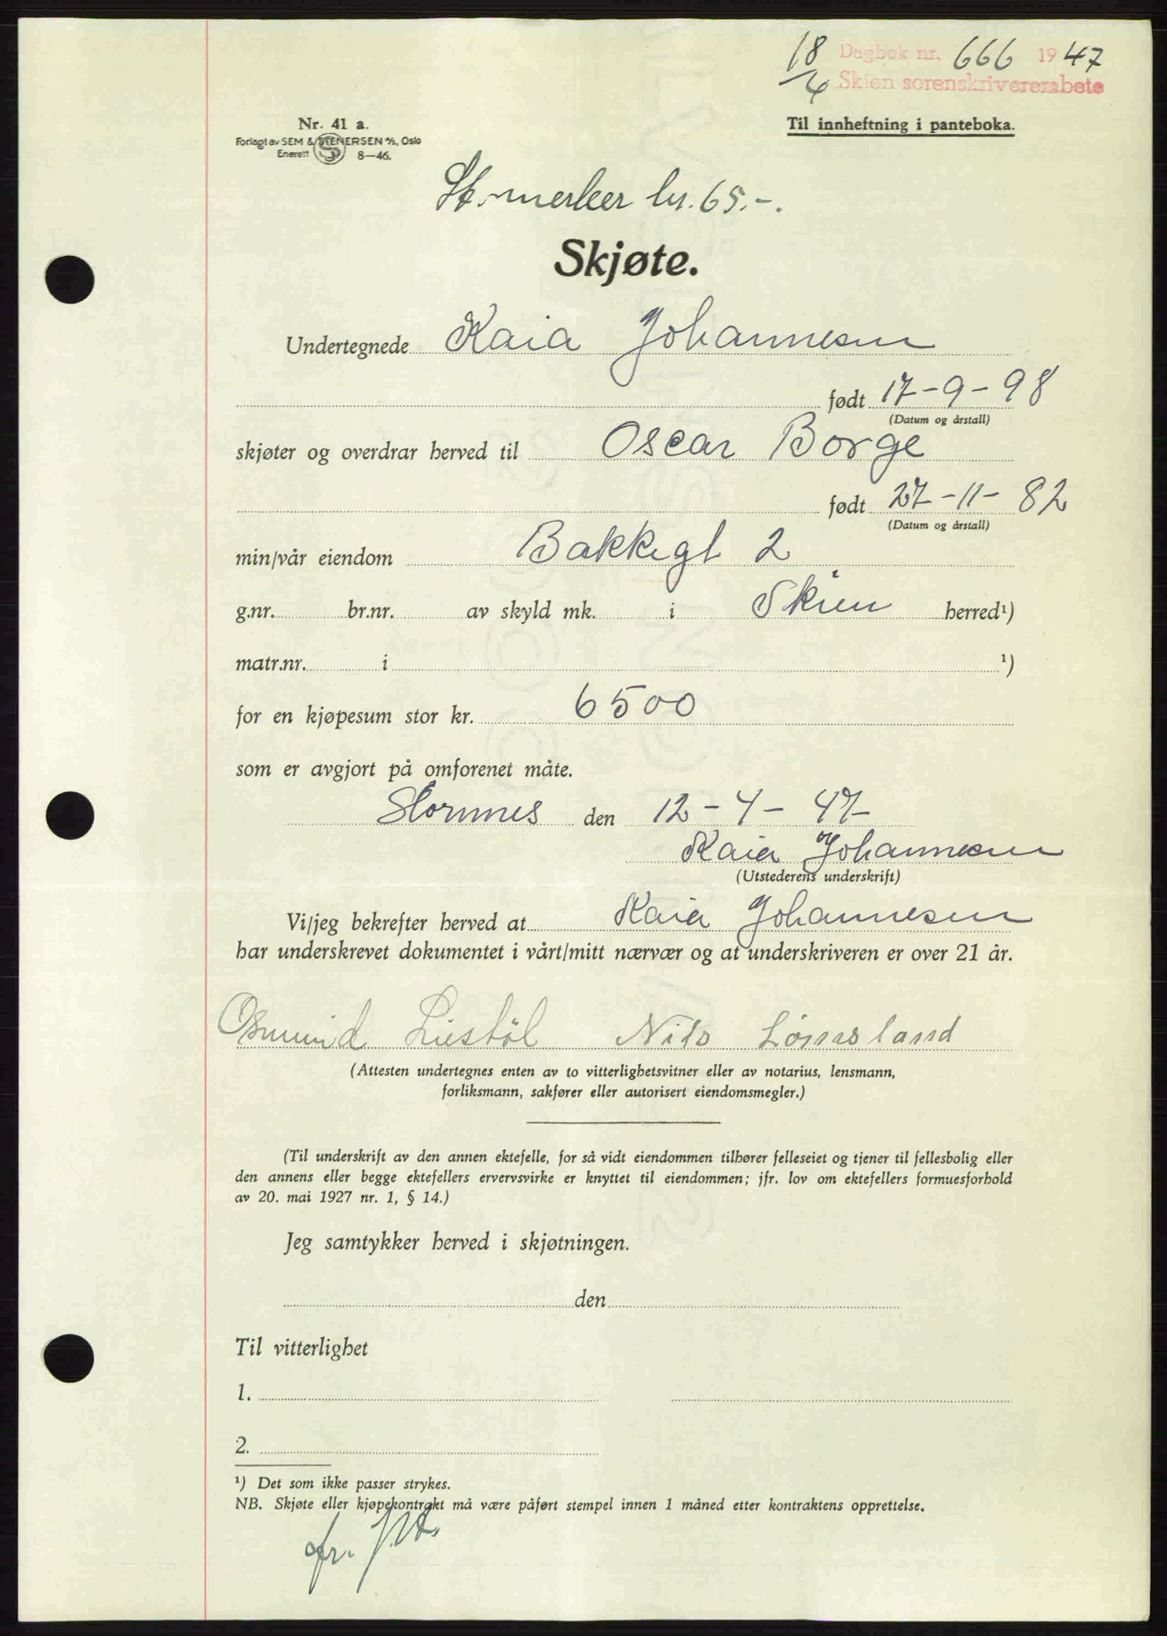 18/4 Dagbok nr. 666 1947
Skien sorenskriverersbete
Nr. 41 a.
Forlagt av SEM & STENERSEN A/S, Oslo
Enerett 8—46.
Til innheftning i panteboka.
St.merker kr. 65.-.
Skjøte.
Undertegnede Kaia Johannesen
født 17-9-98
(Datum og årstall)
skjøter og overdrar herved til Oscar Borge
født 27-11-82
(Datum og årstall)
min/vår eiendom Bakkegt 2
g.nr. br.nr. av skyld mk. i Skien herred¹)
matr.nr. i ¹)
for en kjøpesum stor kr. 6500
som er avgjort på omforenet måte.
den 12-4-47
Kaia Johannesen
(Utstederens underskrift)
Vi/jeg bekrefter herved at Kaia Johannesen
har underskrevet dokumentet i vårt/mitt nærvær og at underskriveren er over 21 år.
Osmund Liestøl Nils
(Attesten undertegnes enten av to vitterlighetsvitner eller av notarius, lensmann,
forliksmann, sakfører eller autorisert eiendomsmegler.)
(Til underskrift av den annen ektefelle, for så vidt eiendommen tilhører felleseiet og tjener til fellesbolig eller
den annens eller begge ektefellers ervervsvirke er knyttet til eiendommen; jfr. lov om ektefellers formuesforhold
av 20. mai 1927 nr. 1, § 14.)
Jeg samtykker herved i skjøtningen.
den
Til vitterlighet
1.
2.
¹) Det som ikke passer strykes.
NB. Skjøte eller kjøpekontrakt må være påført stempel innen 1 måned etter kontraktens opprettelse.